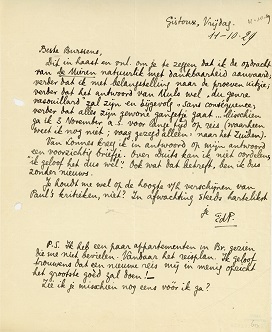 Gistoux, Vrijdag.
11-10-29
Beste Burssens,
Dit in haast en om je te zeggen dat ik de opdracht
van de Mieren natuurlik met dankbaarheid aanvaard;
verder dat ik met belangstelling naar de proeven uitzie;
verder dat het antwoord van Meule wel „du genre
vasouillard" zal zijn en bijgevolg „sans conséquence;
verder dat alles zijn gewone gangetje gaat... Misschien
ga ik 3 November a.s. voor lange tijd op reis (waarheen
weet ik nog niet; vaag gezegd alleen: naar het Zuiden).
Van kreeg ik in antwoord op mijn antwoord
een voorzichtig briefje. Over duits kan ik niet oordelen
ik geloof het dus wel! Ook wat dat betreft, ben ik dus
zonder nieuws.
Je houdt me wel op de hoogte v/h verschijnen van
Paul's kritieken, niet? In afwachting steeds hartelikst
je
EdP.
P.S. Ik heb een paar appartementen in Br. gezien
die me niet bevielen. Vandaar het reisplan. Ik geloof
trouwens dat een nieuwe reis mij in menig opzicht
het grootste goed zal doen!—
Zie ik je misschien nog eens vóór ik ga?